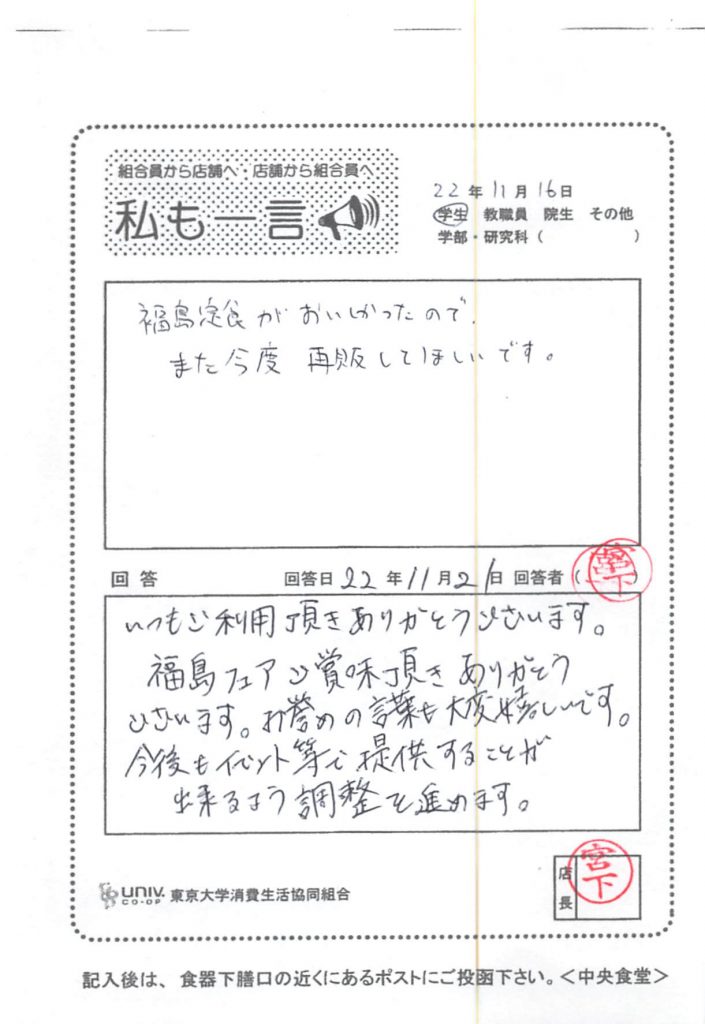 組合員から店舗へ・店舗から組合員へ
私も一言
22年11月16日
学生 教職員 院生 その他
学部・研究科( )
福島定食がおいしかったので、
また今度 再販してほしいです。
回答 回答日 22年11月21日 回答者(宮下)
いつもご利用頂きありがとうございます。
福島フェアご賞味頂きありがとう
ございます。お誉めの言葉も大変嬉しいです。
今後もイベント等で提供することが
出来るよう調整を進めます。
店長 宮下
UNIV. CO-OP 東京大学消費生活協同組合
記入後は、食器下膳口の近くにあるポストにご投函下さい。<中央食堂>